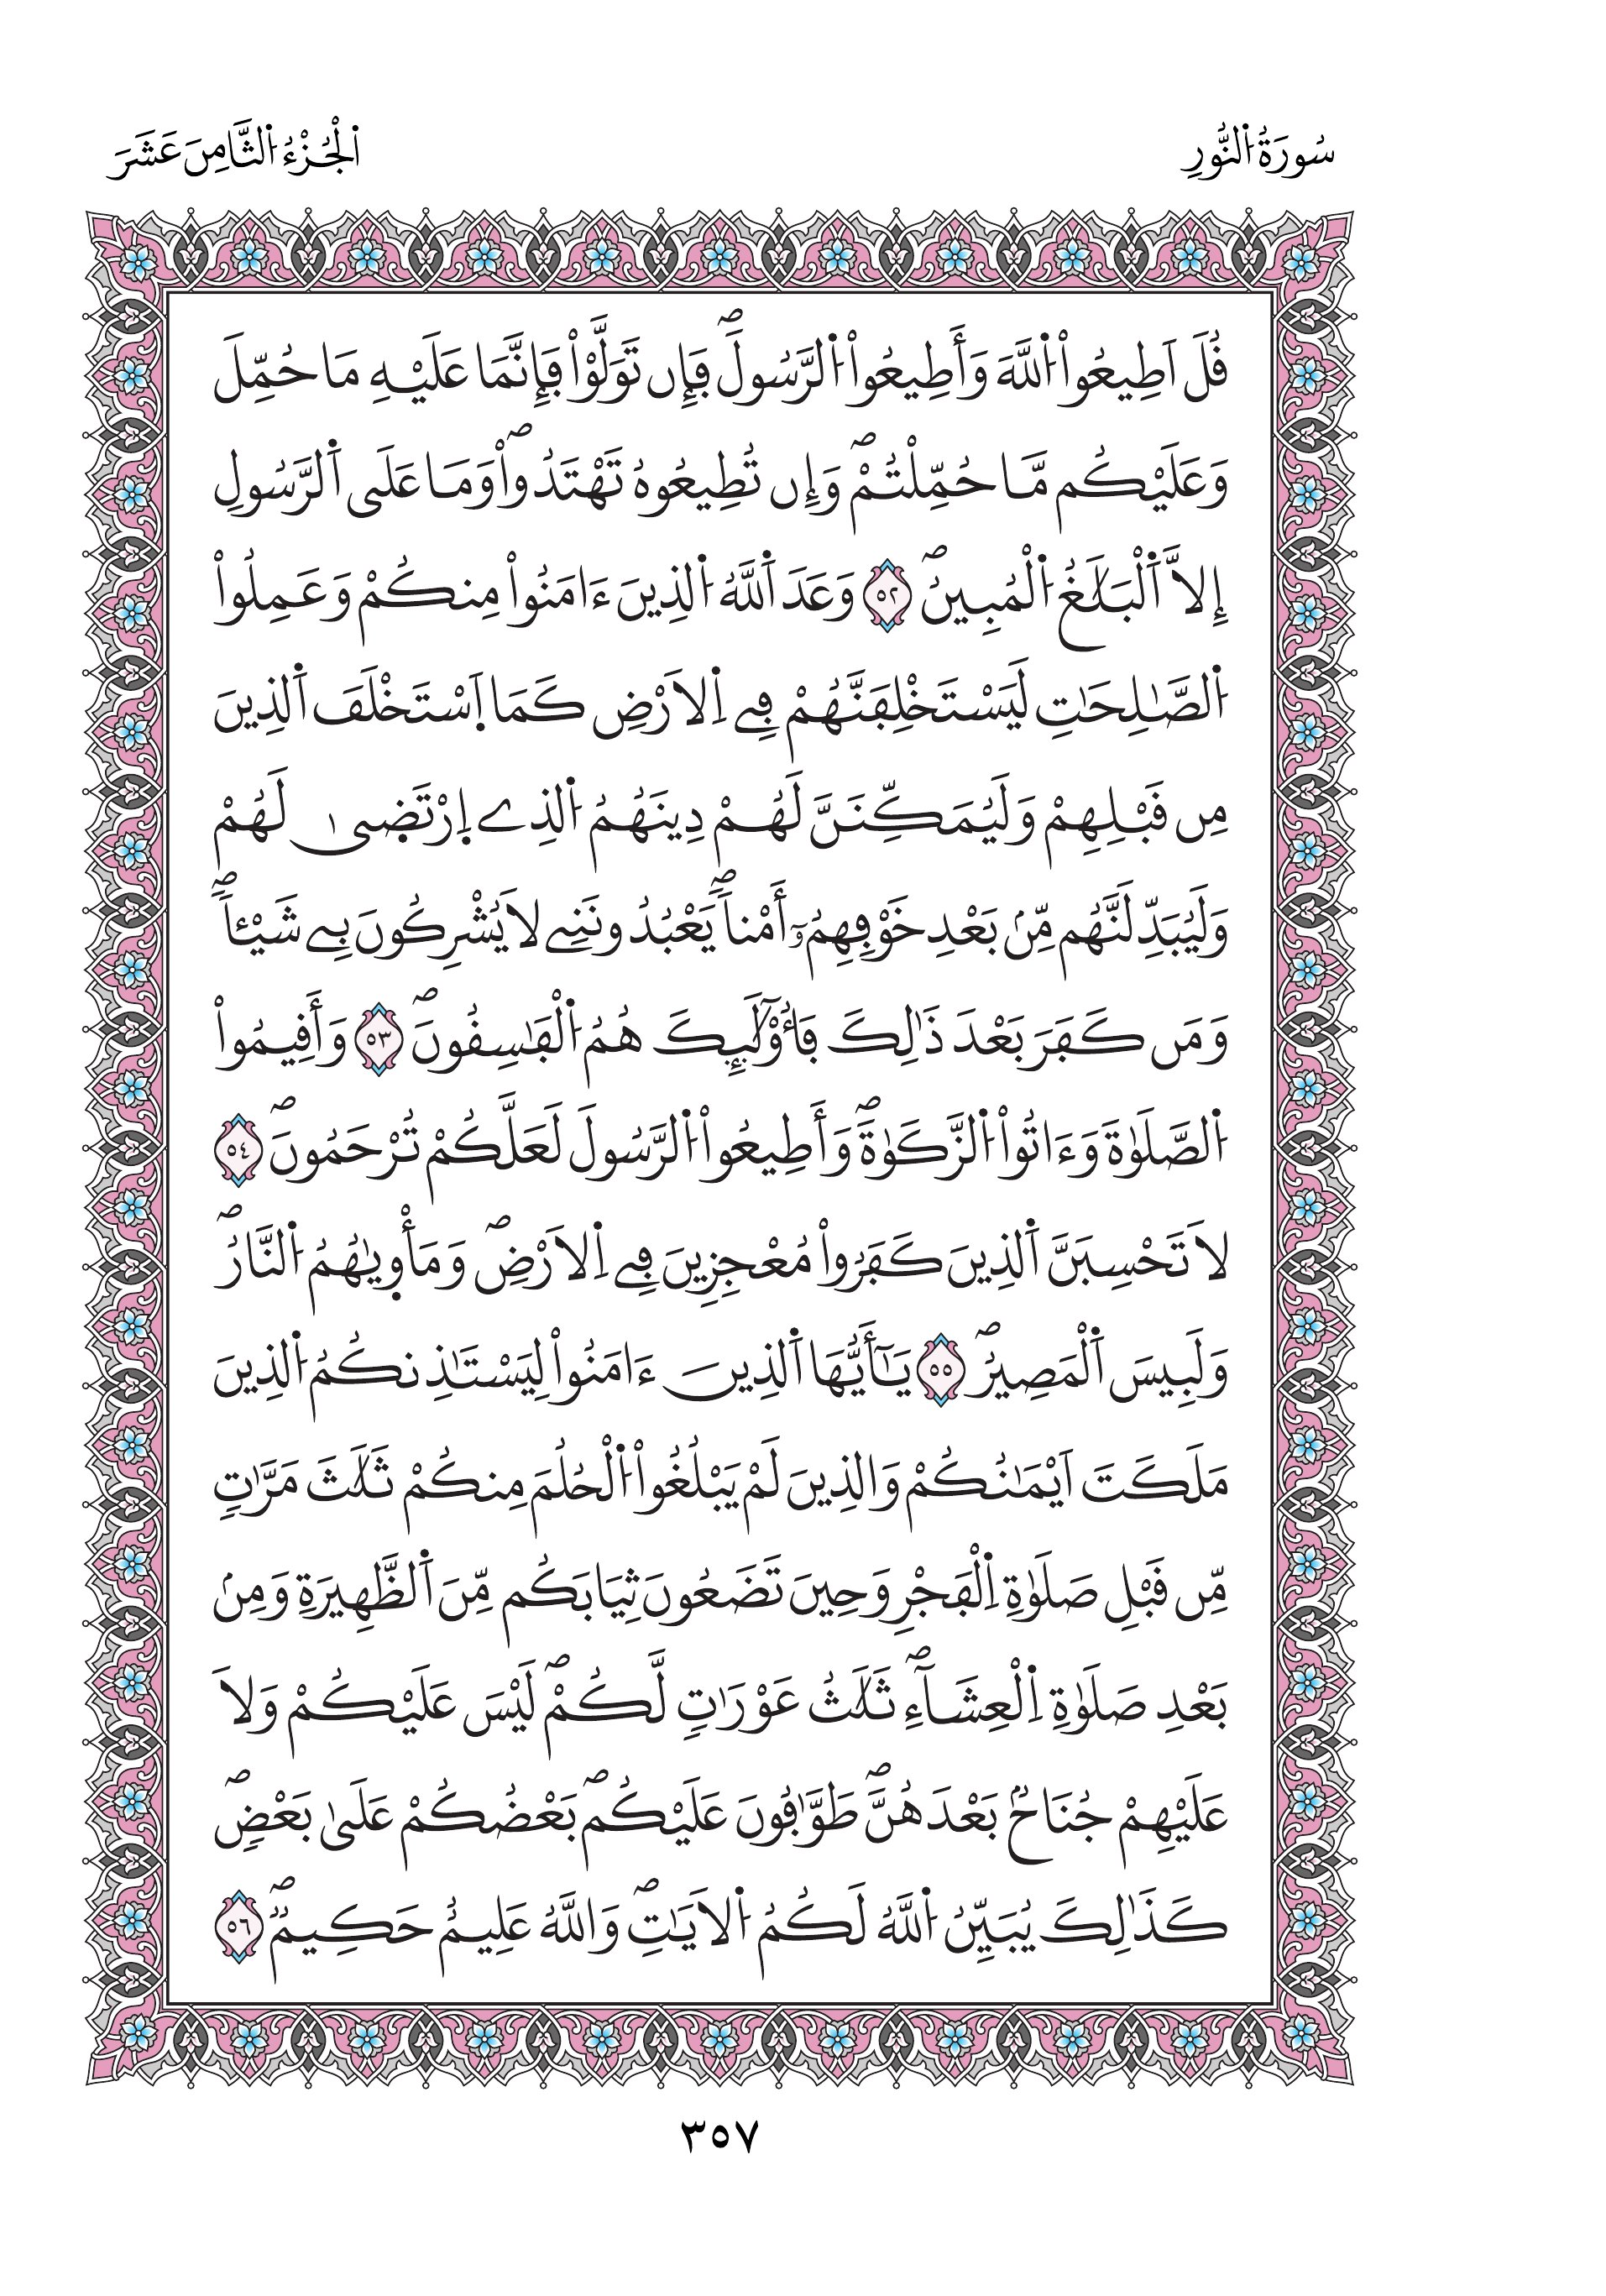 سُورَةُ اُ۬لنُّورِ
اَ۬لْجُزْءُ اُ۬لثَّامِنَ عَشَرَ
قُلَ اَطِيعُواْ اُ۬للَّهَ وَأَطِيعُواْ اُ۬لرَّسُولَۖ فَإِن تَوَلَّوْاْ فَإِنَّمَا عَلَيْهِ مَا حُمِّلَ
وَعَلَيْكُم مَّا حُمِّلْتُمْۖ وَإِن تُطِيعُوهُ تَهْتَدُواْۖ وَمَا عَلَى اَ۬لرَّسُولِ
إِلَّا اَ۬لْبَلَٰغُ اُ۬لْمُبِينُۖ ٥٢ وَعَدَ اَ۬للَّهُ اُ۬لذِينَ ءَامَنُواْ مِنكُمْ وَعَمِلُواْ
اُ۬لصَّٰلِحَٰتِ لَيَسْتَخْلِفَنَّهُمْ فِے اِ۬لَارْضِ كَمَا اَ۪سْتَخْلَفَ اَ۬لذِينَ
مِن قَبْلِهِمْ وَلَيُمَكِّنَنَّ لَهُمْ دِينَهُمُ اُ۬لذِے اِ۪رْتَض۪ىٰ لَهُمْ
وَلَيُبَدِّلَنَّهُم مِّنۢ بَعْدِ خَوْفِهِمُۥٓ أَمْناٗۖ يَعْبُدُونَنِے لَا يُشْرِكُونَ بِے شَيْـٔاٗۖ
وَمَن كَفَرَ بَعْدَ ذَٰلِكَ فَأُوْلَٰٓئِكَ هُمُ اُ۬لْفَٰسِقُونَۖ ٥٣ وَأَقِيمُواْ
اُ۬لصَّلَوٰةَ وَءَاتُواْ اُ۬لزَّكَوٰةَۖ وَأَطِيعُواْ اُ۬لرَّسُولَ لَعَلَّكُمْ تُرْحَمُونَۖ ٥٤
لَا تَحْسِبَنَّ اَ۬لذِينَ كَفَرُواْ مُعْجِزِينَ فِے اِ۬لَارْضِۖ وَمَأْو۪يٰهُمُ اُ۬لنَّارُۖ
وَلَبِيسَ اَ۬لْمَصِيرُۖ ٥٥ يَٰٓأَيُّهَا اَ۬لذِينَ ءَامَنُواْ لِيَسْتَٰذِنكُمُ اُ۬لذِينَ
مَلَكَتَ اَيْمَٰنُكُمْ وَالذِينَ لَمْ يَبْلُغُواْ اُ۬لْحُلُمَ مِنكُمْ ثَلَٰثَ مَرَّٰتٖ
مِّن قَبْلِ صَلَوٰةِ اِ۬لْفَجْرِ وَحِينَ تَضَعُونَ ثِيَابَكُم مِّنَ اَ۬لظَّهِيرَةِ وَمِنۢ
بَعْدِ صَلَوٰةِ اِ۬لْعِشَآءِۖ ثَلَٰثُ عَوْرَٰتٖ لَّكُمْۖ لَيْسَ عَلَيْكُمْ وَلَا
عَلَيْهِمْ جُنَاحُۢ بَعْدَهُنَّۖ طَوَّٰفُونَ عَلَيْكُمۖ بَعْضُكُمْ عَلَىٰ بَعْضٖۖ
كَذَٰلِكَ يُبَيِّنُ اُ۬للَّهُ لَكُمُ اُ۬لَايَٰتِۖ وَاللَّهُ عَلِيمٌ حَكِيمٞۖ ٥٦
٣٥٧